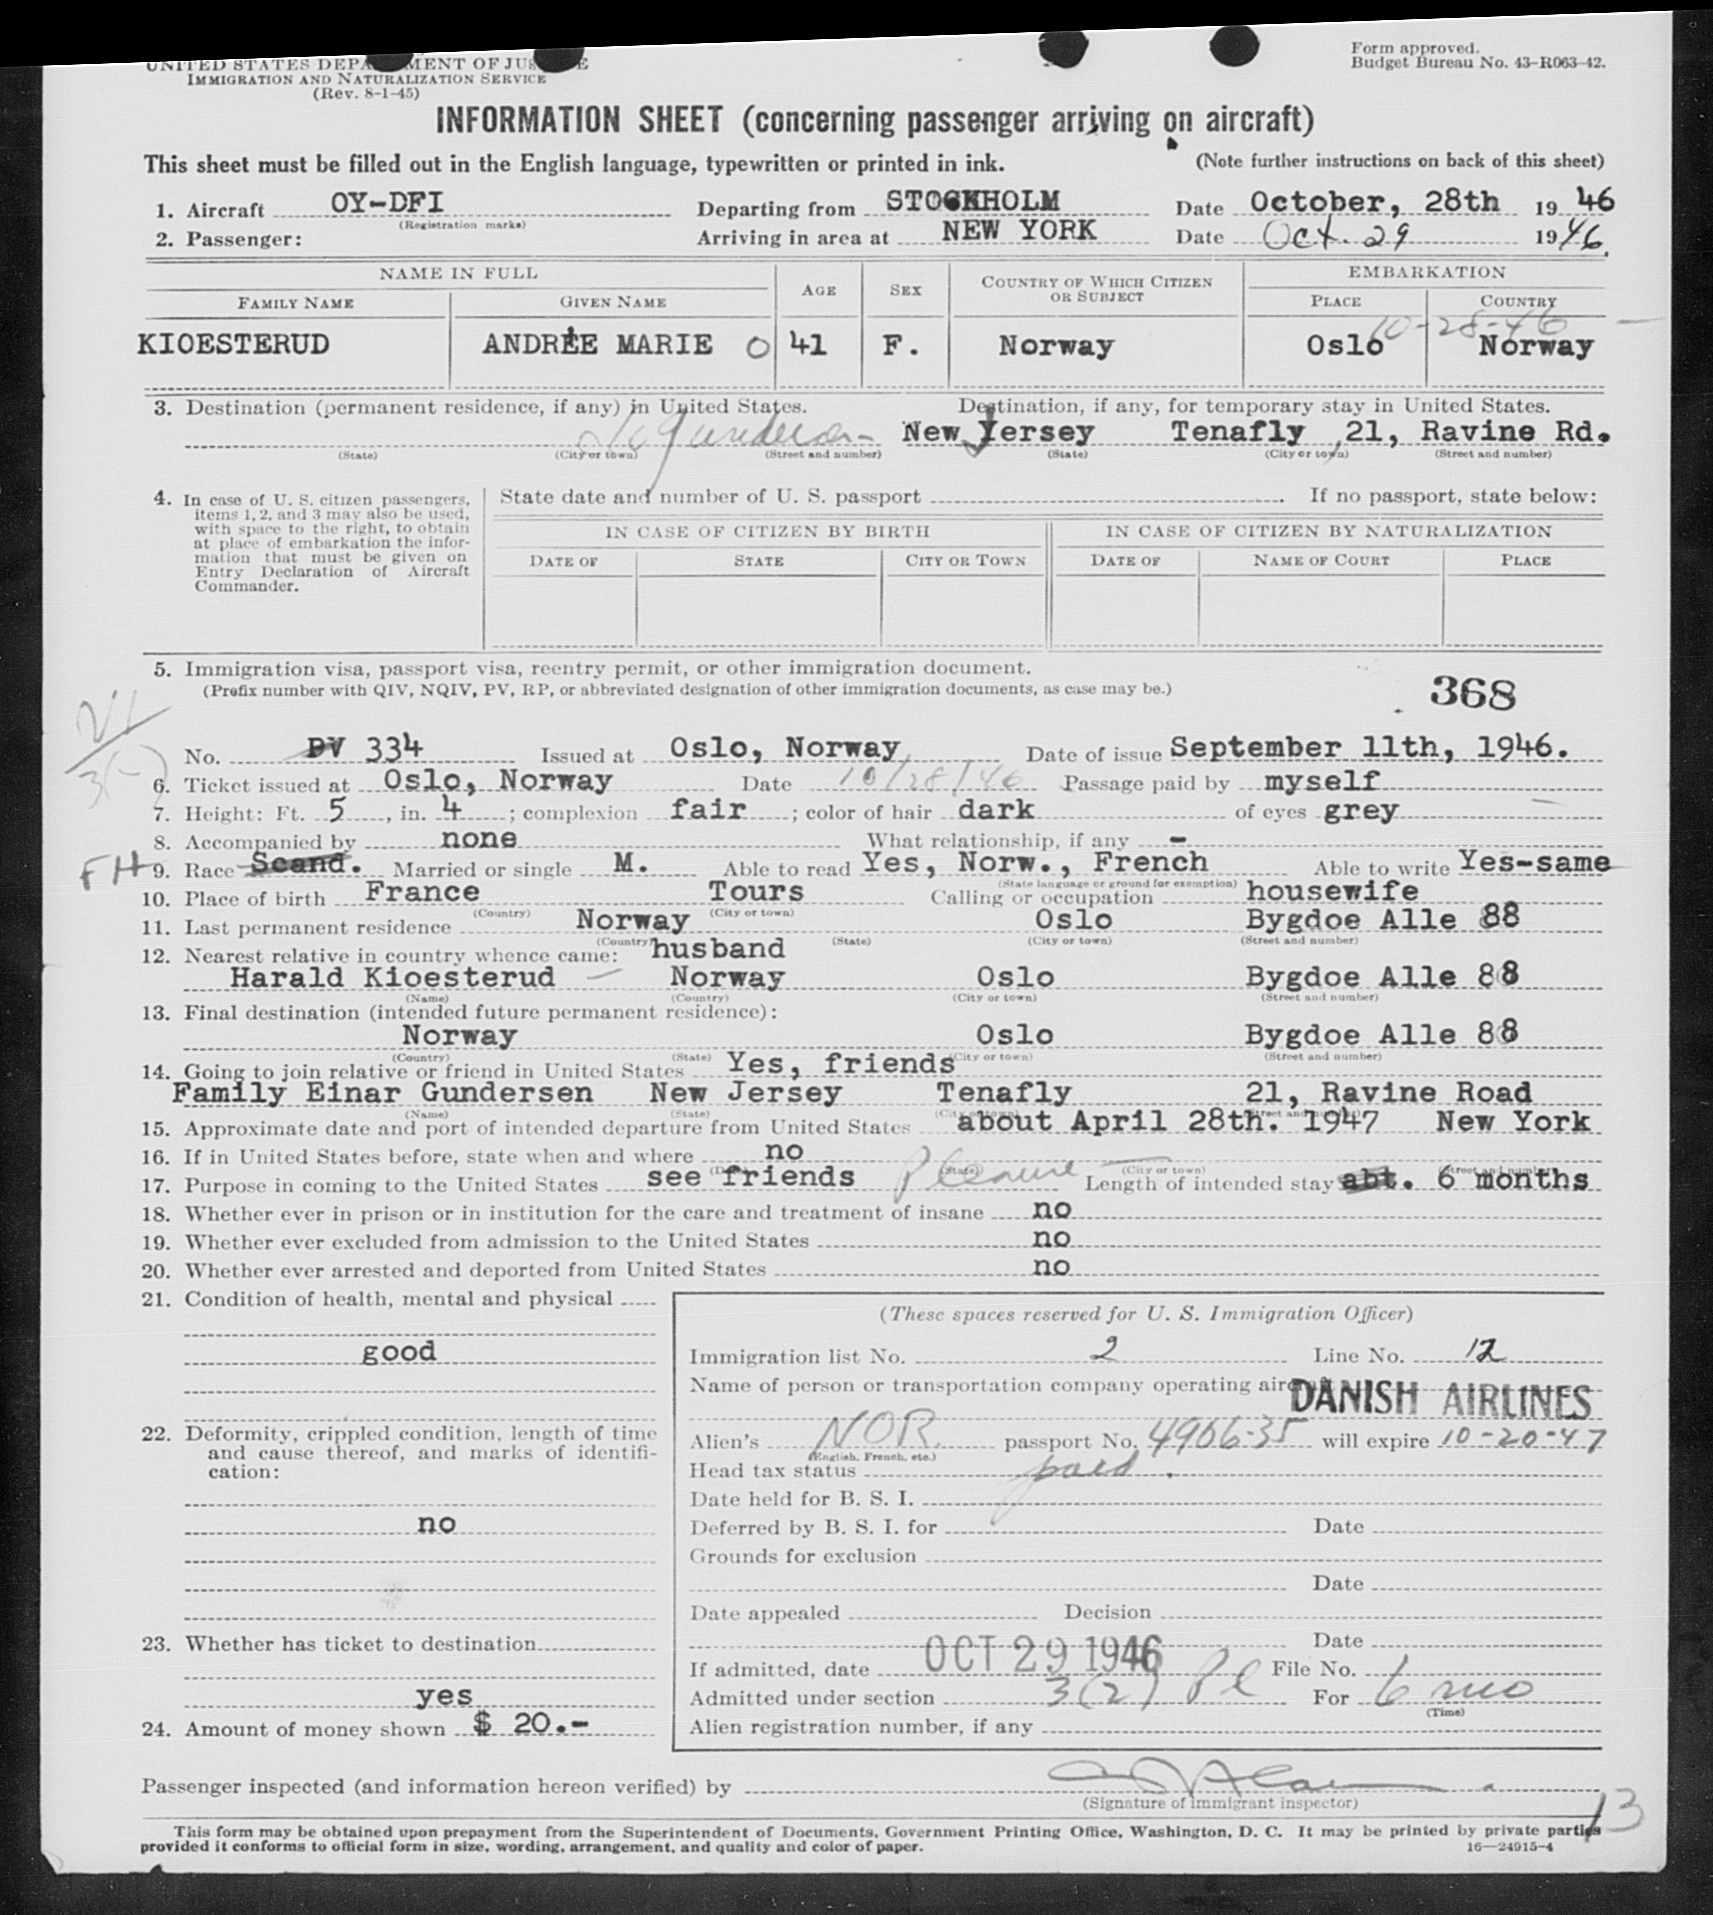 UNITED STATES DEPARTMENT OF JUSTICE
IMMIGRATION AND NATURALIZATION SERVICE
(Rev. 8-1-45)
Form approved.
Budget Bureau No. 43-R063-42.
INFORMATION SHEET (concerning passenger arriving on aircraft)
This sheet must be filled out in the English language, typewritten or printed in ink. (Note further instructions on back of this sheet)
1. Aircraft OY-DFI (Registration marks) Departing from STOCKHOLM Date October, 28th 1946
2. Passenger: Arriving in area at NEW YORK Date Oct. 29 1946.
NAME IN FULL AGE SEX COUNTRY OF WHICH CITIZEN OR SUBJECT EMBARKATION
FAMILY NAME GIVEN NAME PLACE COUNTRY
10-28-46
KIOESTERUD ANDRÉE MARIE O 41 F. Norway Oslo Norway
3. Destination (permanent residence, if any) in United States. Destination, if any, for temporary stay in United States.
Gundersen New Jersey Tenafly 21, Ravine Rd.
(State) (City or town) (Street and number) (State) (City or town) (Street and number)
4. In case of U. S. citizen passengers, items 1, 2, and 3 may also be used, with space to the right, to obtain at place of embarkation the information that must be given on Entry Declaration of Aircraft Commander.
State date and number of U. S. passport If no passport, state below:
IN CASE OF CITIZEN BY BIRTH IN CASE OF CITIZEN BY NATURALIZATION
DATE OF STATE CITY OR TOWN DATE OF NAME OF COURT PLACE
5. Immigration visa, passport visa, reentry permit, or other immigration document.
(Prefix number with QIV, NQIV, PV, RP, or abbreviated designation of other immigration documents, as case may be.)
368
No. PV 334 Issued at Oslo, Norway Date of issue September 11th, 1946.
6. Ticket issued at Oslo, Norway Date 10/28/46 Passage paid by myself
7. Height: Ft. 5, in. 4; complexion fair; color of hair dark of eyes grey
8. Accompanied by none What relationship, if any -
FH 9. Race Scand. Married or single M. Able to read Yes, Norw., French Able to write Yes-same
(State language or ground for exemption)
10. Place of birth France Tours Calling or occupation housewife
(Country) (City or town)
11. Last permanent residence Norway Oslo Bygdoe Alle 88
(Country) (State) (City or town) (Street and number)
12. Nearest relative in country whence came: husband
Harald Kioesterud Norway Oslo Bygdoe Alle 88
(Name) (Country) (City or town) (Street and number)
13. Final destination (intended future permanent residence):
Norway Oslo Bygdoe Alle 88
(Country) (State) (City or town) (Street and number)
14. Going to join relative or friend in United States Yes, friends
Family Einar Gundersen New Jersey Tenafly 21, Ravine Road
(Name) (State) (City or town) (Street and number)
15. Approximate date and port of intended departure from United States about April 28th. 1947 New York
16. If in United States before, state when and where no
(Date) (State) (City or town) (Street and number)
17. Purpose in coming to the United States see friends Pleasure Length of intended stay abt. 6 months
18. Whether ever in prison or in institution for the care and treatment of insane no
19. Whether ever excluded from admission to the United States no
20. Whether ever arrested and deported from United States no
21. Condition of health, mental and physical
good
22. Deformity, crippled condition, length of time and cause thereof, and marks of identification:
no
23. Whether has ticket to destination
yes
24. Amount of money shown $ 20.-
(These spaces reserved for U. S. Immigration Officer)
Immigration list No. 2 Line No. 12
Name of person or transportation company operating aircraft
DANISH AIRLINES
Alien's NOR. passport No. 4906-35 will expire 10-20-47
(English, French, etc.)
Head tax status paid.
Date held for B. S. I.
Deferred by B. S. I. for Date
Grounds for exclusion
Date
Date appealed Decision
Date
If admitted, date OCT 29 1946 File No.
Admitted under section 3(2) Pl For 6 mo
(Time)
Alien registration number, if any
Passenger inspected (and information hereon verified) by
(Signature of immigrant inspector)
13
This form may be obtained upon prepayment from the Superintendent of Documents, Government Printing Office, Washington, D. C. It may be printed by private parties
provided it conforms to official form in size, wording, arrangement, and quality and color of paper. 16—24915-4